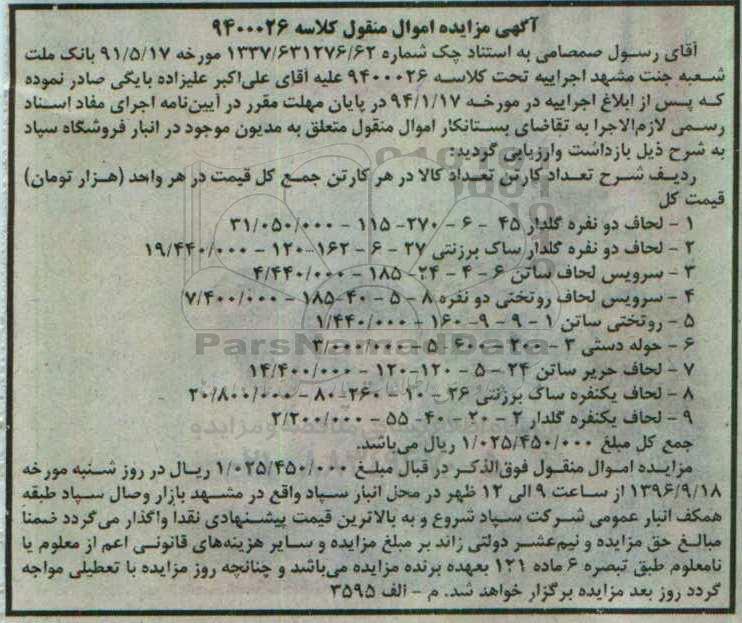 آگهی مزایده اموال منقول کلاسه ۹۴۰۰۰۲۶
آقای رسول صمصامی به استناد چک شماره ۱۳۳۷/۶۳۱۲۷۶/۶۲ مورخه ۹۱/۵/۱۷ بانک ملت
شعبه جنت مشهد اجراییه تحت کلاسه ۹۴۰۰۰۲۶ علیه آقای علی‌اکبر علیزاده بایگی صادر نموده
که پس از ابلاغ اجراییه در مورخه ۹۴/۱/۱۷ در پایان مهلت مقرر در آیین‌نامه اجرای مفاد اسناد
رسمی لازم‌الاجرا به تقاضای بستانکار اموال منقول متعلق به مدیون موجود در انبار فروشگاه سپاد
به شرح ذیل بازداشت وارزیابی گردید:
ردیف شرح تعداد کارتن تعداد کالا در هر کارتن جمع کل قیمت در هر واحد (هزار تومان)
قیمت کل
۱ - لحاف دو نفره گلدار ۴۵ - ۶ - ۲۷۰- ۱۱۵ - ۳۱/۰۵۰/۰۰۰
۲ - لحاف دو نفره گلدار ساک برزنتی ۲۷ - ۶ - ۱۶۲-۱۲۰ - ۱۹/۴۴۰/۰۰۰
۳ - سرویس لحاف ساتن ۶ - ۴ - ۲۴- ۱۸۵ - ۴/۴۴۰/۰۰۰
۴ - سرویس لحاف روتختی دو نفره ۸ - ۵ - ۴۰-۱۸۵ - ۷/۴۰۰/۰۰۰
۵ - روتختی ساتن ۱ - ۹ - ۹-۱۶۰ - ۱/۴۴۰/۰۰۰
۶ - حوله دستی ۳ - ۲۰۰ - ۶۰۰-۵ - ۳/۰۰۰/۰۰۰
۷ - لحاف حریر ساتن ۲۴ - ۵ - ۱۲۰-۱۲۰ - ۱۴/۴۰۰/۰۰۰
۸ - لحاف یکنفره ساک برزنتی ۲۶ - ۱۰ - ۲۶۰-۸۰ - ۲۰/۸۰۰/۰۰۰
۹ - لحاف یکنفره گلدار ۲ - ۲۰ - ۴۰- ۵۵ - ۲/۲۰۰/۰۰۰
جمع کل مبلغ ۱/۰۲۵/۴۵۰/۰۰۰ ریال می‌باشد.
مزایده اموال منقول فوق‌الذکر در قبال مبلغ ۱/۰۲۵/۴۵۰/۰۰۰ ریال در روز شنبه مورخه
۱۳۹۶/۹/۱۸ از ساعت ۹ الی ۱۲ ظهر در محل انبار سپاد واقع در مشهد بازار وصال سپاد طبقه
همکف انبار عمومی شرکت سپاد شروع و به بالاترین قیمت پیشنهادی نقدا واگذار می‌گردد ضمنا
مبالغ حق مزایده و نیم‌عشر دولتی زائد بر مبلغ مزایده و سایر هزینه‌های قانونی اعم از معلوم یا
نامعلوم طبق تبصره ۶ ماده ۱۲۱ بعهده برنده مزایده می‌باشد و چنانچه روز مزایده با تعطیلی مواجه
گردد روز بعد مزایده برگزار خواهد شد. م - الف ۳۵۹۵
ParsNamadData